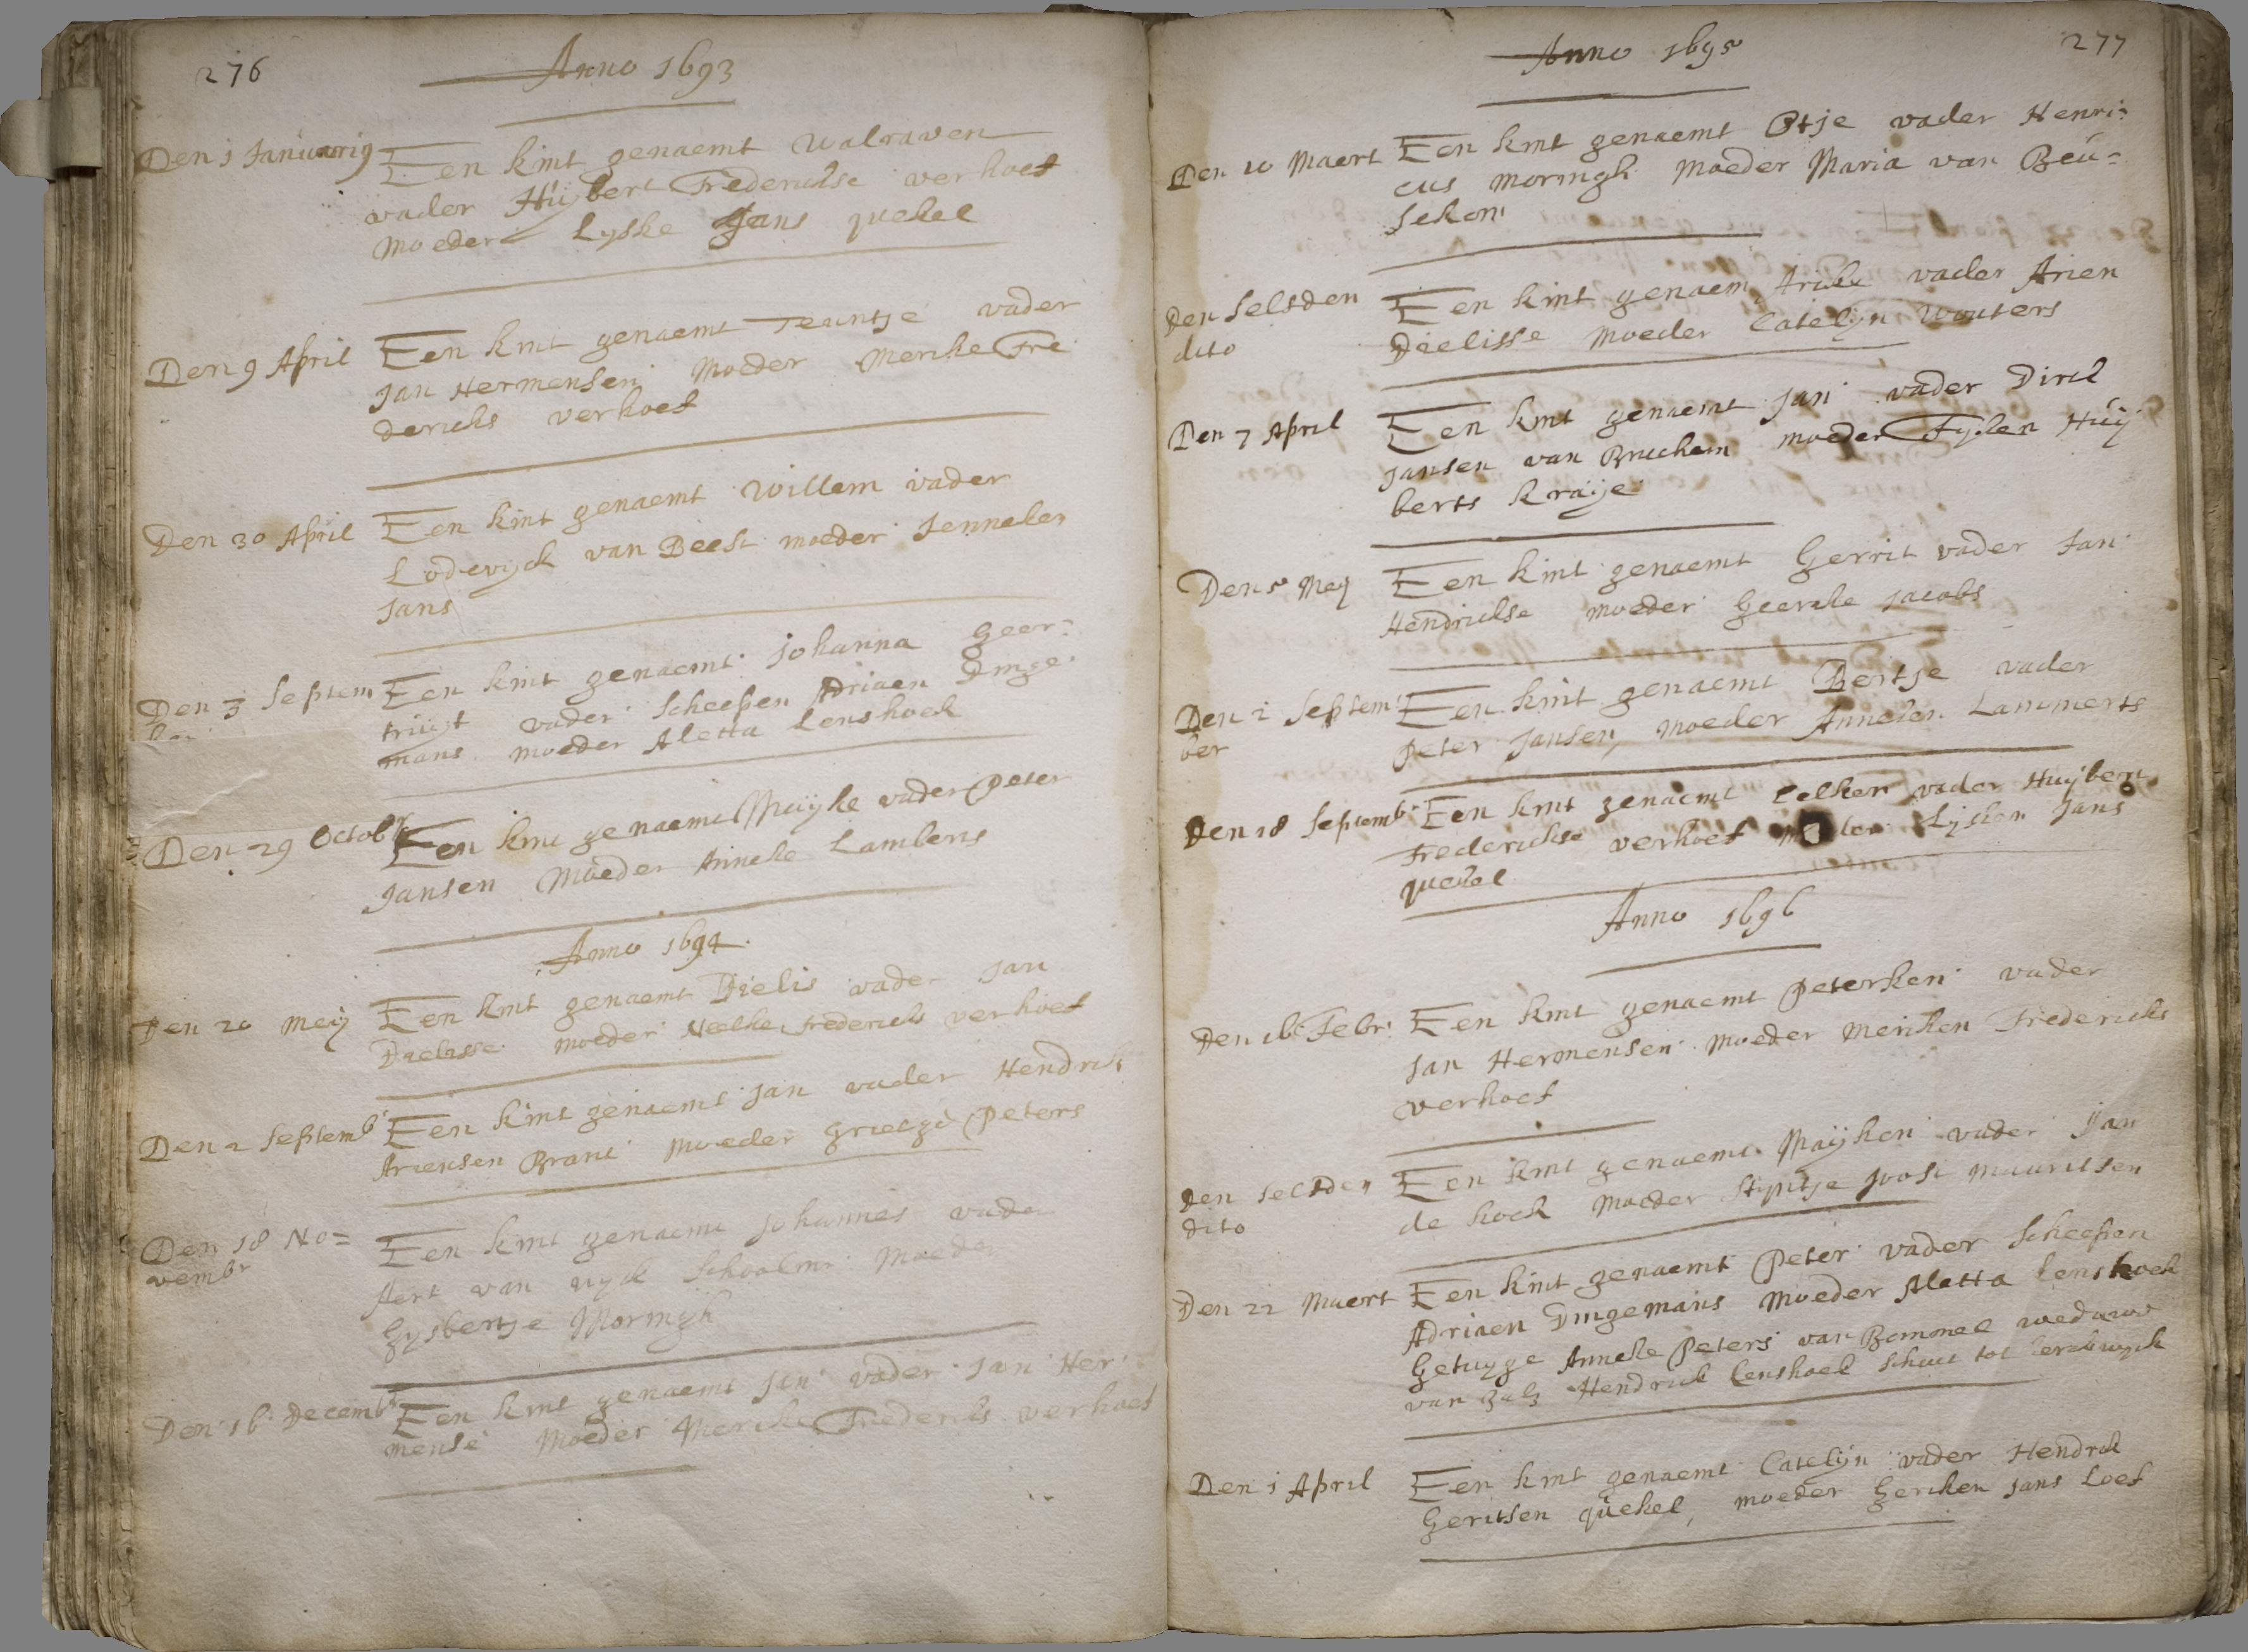 276
Anno 1693
Den 1 Januarij Een kint genaemt Walraven
vader Huijbert Fredericksе verhoef
Moeder Lyske Jans quekel
Den 9 April Een kint genaemt Teuntje vader
Jan Hermensen Moeder Merike Fre
dericks verhoef
Den 30 April Een kint genaemt Willem vader
Lodewyck van Beest moeder Jenneken
Jans
Den 3 Septem Een kint genaemt Johanna Geer=
ber truijt vader Scheepen Adriaen Dinge
mans moeder Aletta Lenshoek
Den 29 Octobr Een kint genaemt Maijke vader Peter
Jansen Moeder Anneke Lamberts
Anno 1694
Den 20 Meij Een kint genaemt Dielis vader Jan
Dielisse moeder Neelke fredericks verhoef
Den 2 Septemb Een kint genaemt Jan vader Hendrik
Ariensen Brant Moeder Grietge Peters
Den 18 No= Een kint genaemt Johannes vader
vembr Aert van uyck Schoolmr Moeder
Gysbertje Moringh
Den 16 Decembr Een kint genaemt Jan vader Jan Her
mense Moeder Mericke Fredericks verhoef
277
Anno 1695
Den 10 Maert Een kint genaemt Otje vader Henri=
cus moringh Moeder Maria van Beu=
sekom
Den selsden Een kint genaem Aricke vader Arien
dito Dielisse Moeder Catelijn Wouters
Den 7 April Een kint genaemt Jan vader Dirck
Jansen van Bruchem moeder Fyken Huij
berts kraije
Den 5 Meij Een kint genaemt Gerrit vader Jan
Hendrickse moeder Geerike Jacobs
Den 2 Septem Een kint genaemt Bertje vader
ber Peter Jansen, moeder Anneken Lammerts
Den 18 Septemb Een kint genaemt Eelken vader Huijbert
Frederickse verhoef moeder Lysken Jans
quekel
Anno 1696
Den 16 Febr: Een kint genaemt Peterken vader
Jan Hermensen Moeder Meriken Fredericks
verhoef
Den selsden Een kint genaemt Maijken vader Jan
dito de kock Moeder Stijntje Joost Mauritsen
Den 22 Maert Een kint genaemt Peter vader Scheepen
Adriaen Dingemans Moeder Aletta Lenshoek
Getuyge Anneke Peters van Bommel weduwe
van Hendrick Lenshoek Schout tot
Den 1 April Een kint genaemt Catelijn vader Hendrick
Geritsen quekel, moeder Geriken Jans Loef